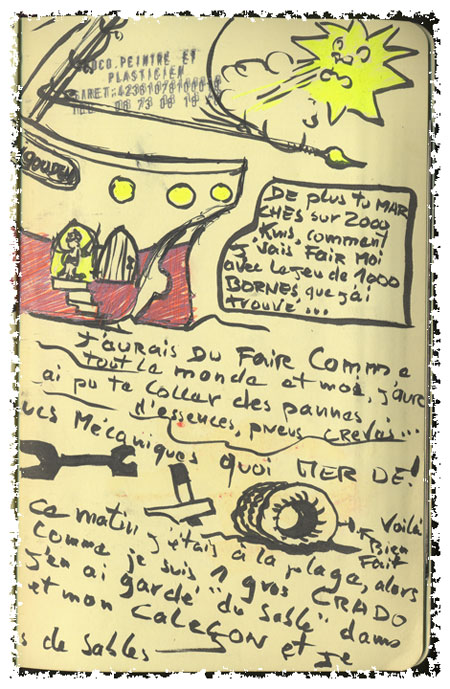 PEINTRE ET
PLASTICIEN
SIRET:
TEL
DE plus tu MAR
CHES sur 2000
Kms, comment
j'vais FAIR Moi
avec Le jeu de 1000
BORNES, que j'ai
trouvé ...
J'AURAIS DU FAIR Comme
tout Le monde et moi, j'aur
ai pu te coller des pannes
d'essences, pneus crevés ...
Mécaniques quoi MERDE!
Voilà
Bien
Fait
ce matin j'étais à la plage, alors
Comme je suis 1 gros CRADO
j'en ai gardé "du sable" dans
et mon CALEÇON et je
s de sables